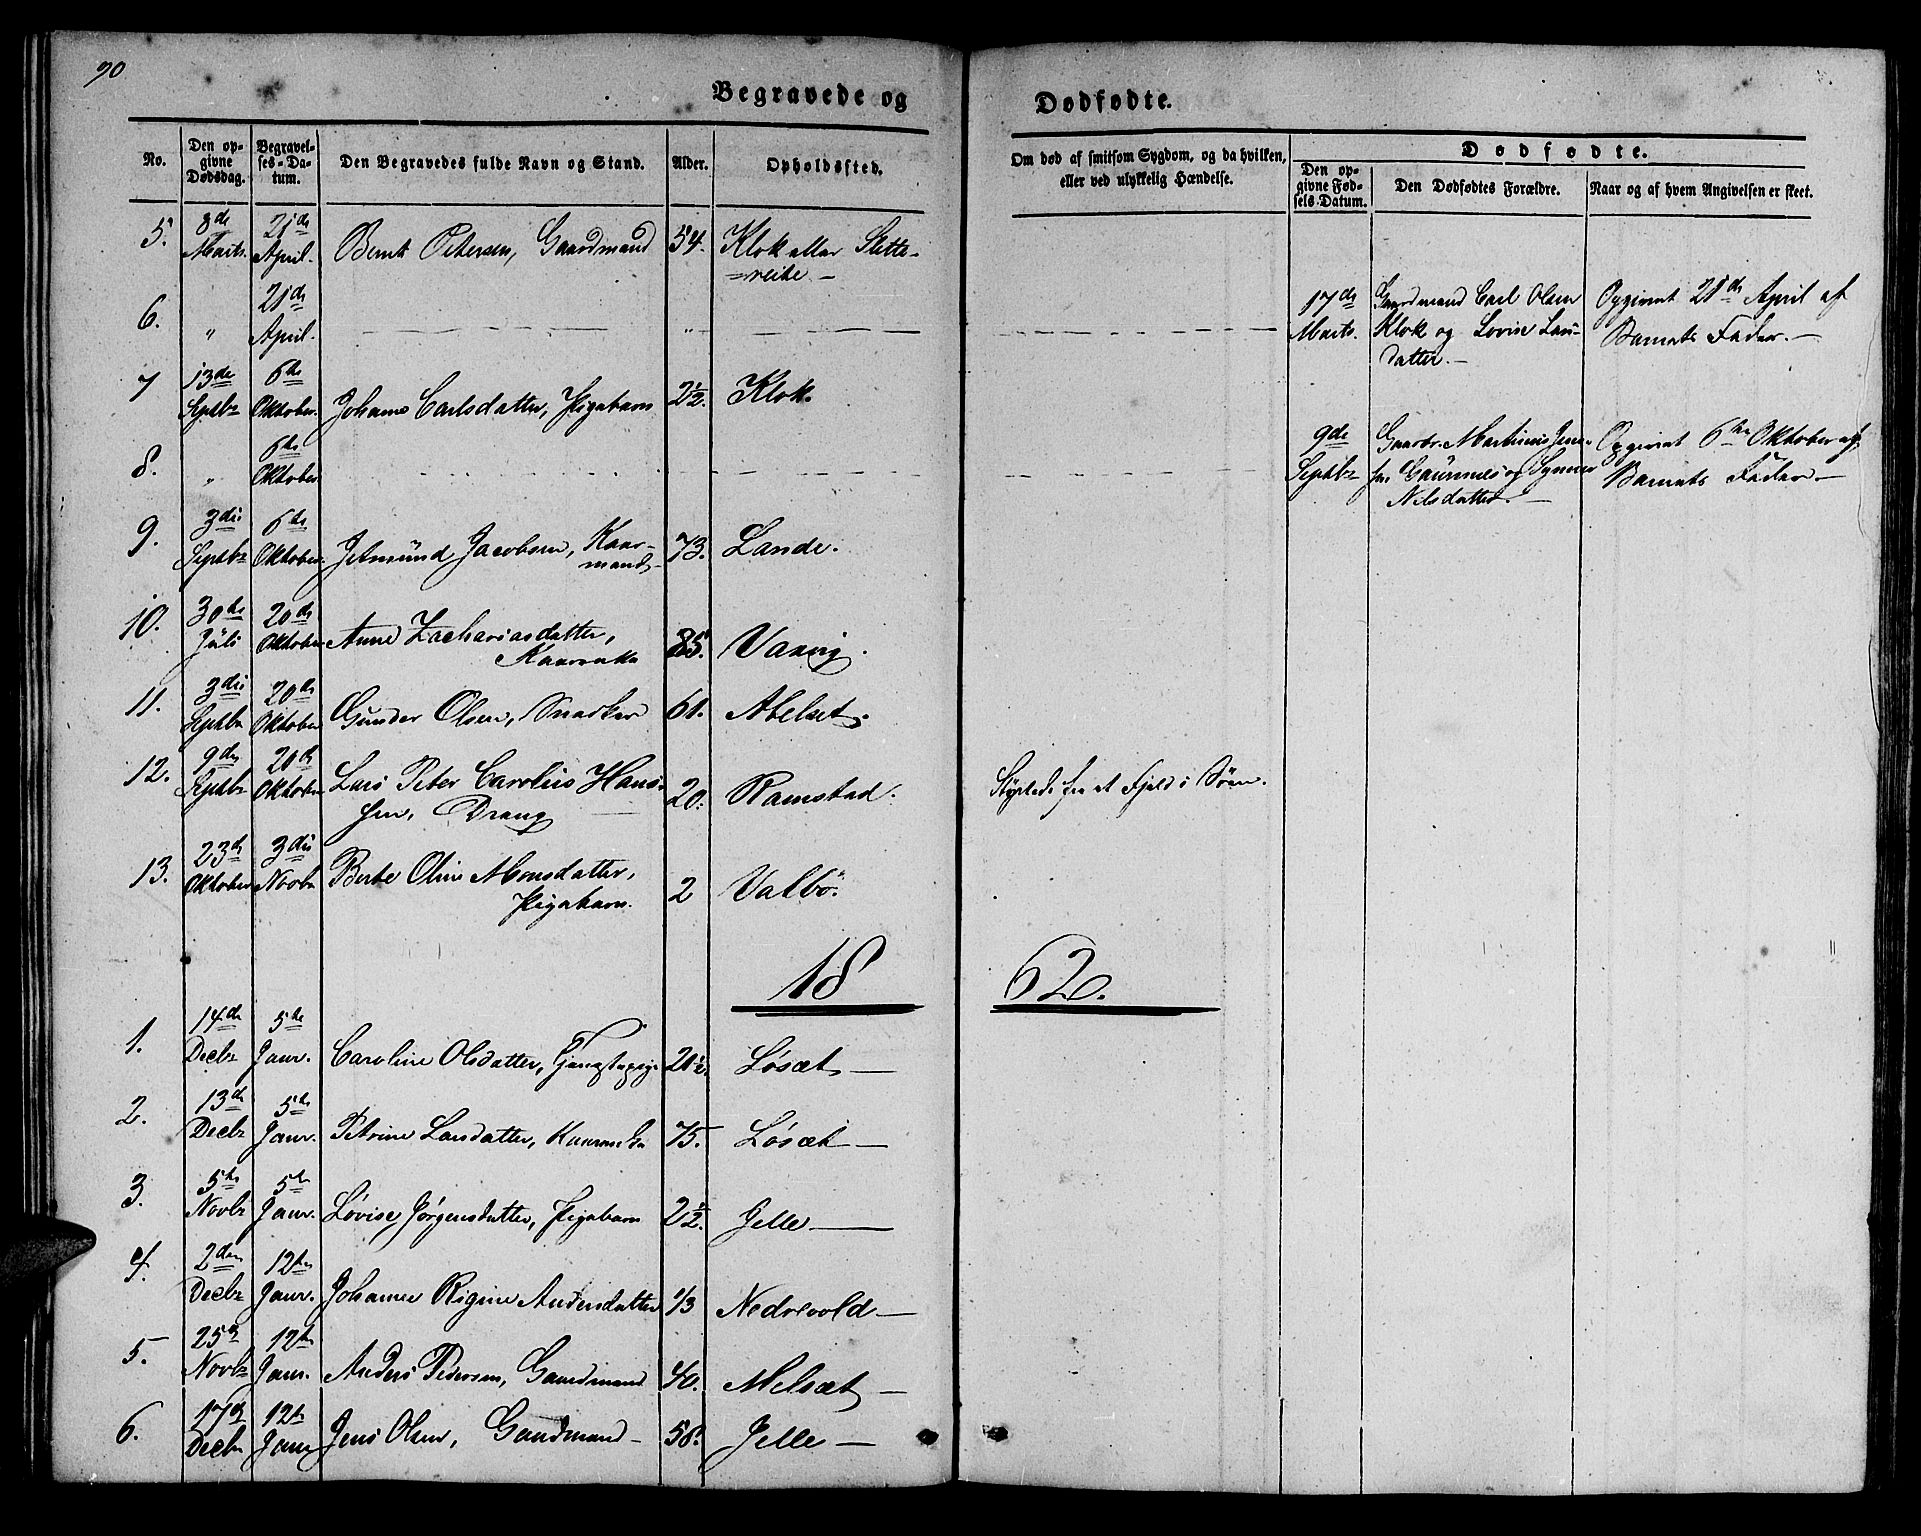 90
Begravede og Dødfødte.
No. Den opgivne Dødsdag. Begravelses-Datum. Den Begravedes fulde Navn og Stand. Alder. Opholdssted. Om død af smitsom Sygdom, og da hvilken, eller ved ulykkelig Hændelse. Dødfødte.
Den opgivne Fødsels-Datum. Den Dødfødtes Forældre. Naar og af hvem Angivelsen er skeet.
5. 8de Marts. 21de April. Bernt Petersen, Gaardmand 54. Klok eller Slette-
=reite.
6. " 21de April. " 17de Marts. Gaardmand Carl Olsen Klok og Lovise Lars-
datter. Opgivet 21de April af Barnets Fader.
7 13de Septbr 6te Oktober. Johanne Carlsdatter, Pigebarn 2½. Klok.
8. " 6te Oktober 9de Septbr Gaardbr. Martinus Jen-
sen og Synner
Nilsdatter. Opgivet 6te Oktober af Barnets Fader.
9. 3die Septbr 6te Oktober Jetmund Jacobsen, Kaar-
mand 73. Lande.
10. 30te Juli 20de Oktober Anne Zachariasdatter,
Kaarenke 85. Vaavig.
11. 3die Septbr 20de Oktober Gunder Olsen, Snedker 61. Abelset.
12. 9de Septbr 20de Oktober Lars Peter Carolius Han-
sen, Dreng 20. Ramstad. Styrtede fra et Fjeld i Søen.
13. 23de Oktober 3die Novbr Berte Oline Monsdatter,
Pigebarn. 2 Valbø.
18 62.
1. 14de Decbr 5te Janr. Caroline Olsdatter, Tjenestepige 21½. Løsæt
2. 13de Decbr 5te Janr. Petrine Larsdatter, Kaarenke 75. Løsæt
3. 5te Novbr 5te Janr. Lovise Jørgensdatter, Pigebarn 2½. Jelle
4. 2den Decbr 12te Janr. Johanne Regine Andersdatter 1/3 Nedrevold
5. 25de Novbr 12te Janr. Anders Pedersen, Gaardmand 40. Melsæt
6. 17de Decbr 12te Janr Jens Olsen, Gaardmand 58. Jelle